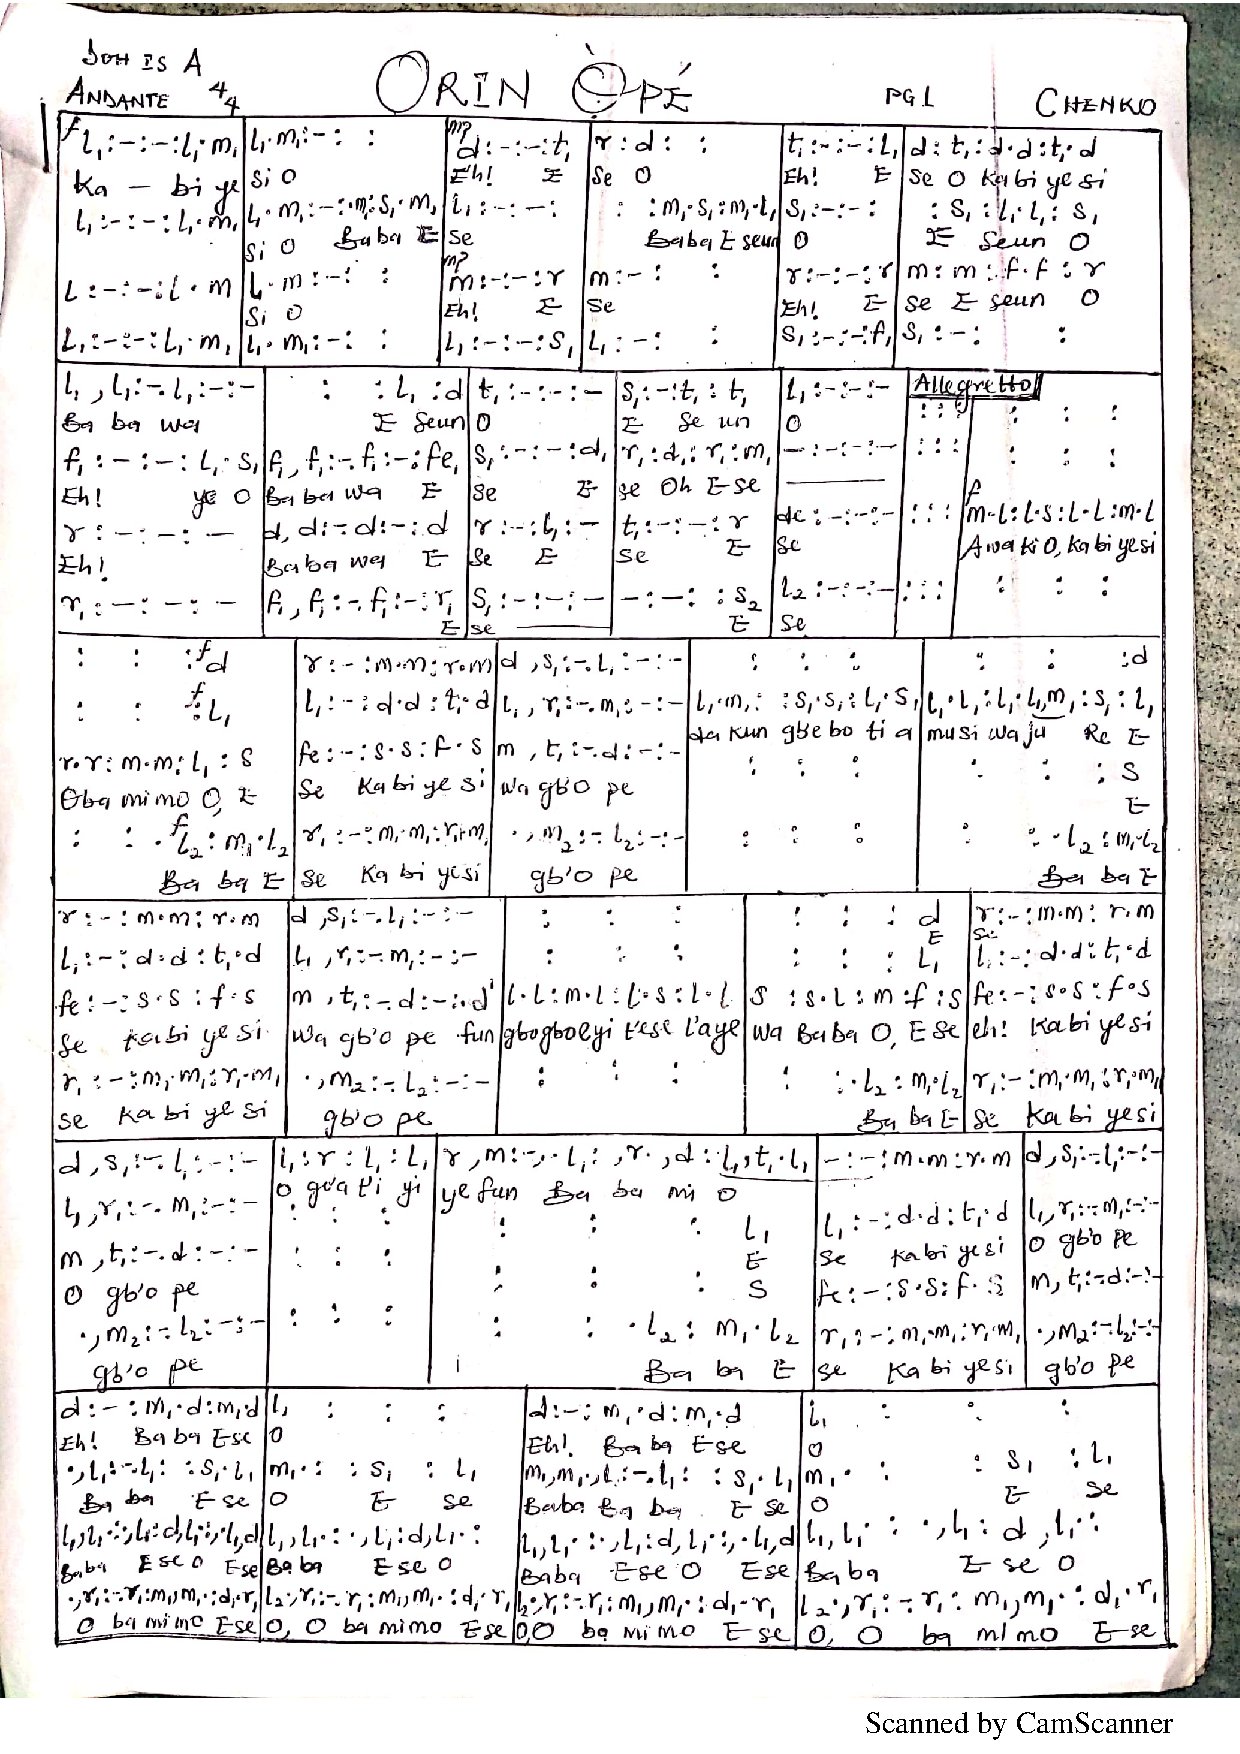 DOH IS A
ANDANTE 4/4 ORIN ỌPÉ PG1 CHENKO
f L₁:-:-:L₁·m₁ | L₁·m₁:-: : | mp d:-:-:t₁ | r:d: : | t₁:-:-:L₁ | d:t₁:d·d:t₁·d
Ka - bi ye | si O | Eh! E | se O | Eh! E | se O Kabi yesi
L₁:-:-:L₁·m₁ | L₁·m₁:-:·m₁:s₁·m₁ | L₁:-:-: | : :m₁·s₁:m₁·L₁ | s₁:-:-: | :s₁:L₁·L₁:s₁
si O Baba E | se | Baba E seun | O | E seun O
L:-:-:L·m | L·m:-: : | mp m:-:-:r | m:-: : | r:-:-:r | m:m:f·f:r
si O | Eh! E | se | Eh! E | se E seun O
L₁:-:-:L₁·m₁ | L₁·m₁:-: : | L₁:-:-:s₁ | L₁:-: : | s₁:-:-:f₁ | s₁:-: :
L₁,L₁:-.L₁:-:- | : :L₁:d | t₁:-:-:- | s₁:-:t₁:t₁ | L₁:-:-:- | Allegretto : : : | : : :
Ba ba wa | E seun | O | E se un | O
f₁:-:-:L₁·s₁ | f₁,f₁:-.f₁:-:fe₁ | s₁:-:-:d₁ | r₁:d₁:r₁:m₁ | -:-:-:- | : : : | : : :
Eh! ye O | Baba wa E | se E | se Oh E se
r:-:-:- | d,d:-.d:-:d | r:-:L₁:- | t₁:-:-:r | de:-:-:- | : : : | f m·L:L·s:L·L:m·L
Eh! | Baba wa E | se E | se E | se | Awa ki O, kabi yesi
r₁:-:-:- | f₁,f₁:-.f₁:-:r₁ | s₁:-:-:- | -:-: :s₂ | L₂:-:-:- | : : : | : : :
E | se | E | se
: : :f d | r:-:m·m:r·m | d,s₁:-.L₁:-:- | : : : | : : :d
: : :f L₁ | L₁:-:d·d:t₁·d | L₁,r₁:-.m₁:-:- | L₁·m₁: :s₁·s₁:L₁·s₁ | L₁·L₁:L₁·L₁,m₁:s₁:L₁
da kun gb'ebo ti a | mu si waju Re E
r·r:m·m:L₁:s | fe:-:s·s:f·s | m,t₁:-.d:-:- | : : : | : : :s
Oba mimo O, E | se Kabi ye si | wa gb'o pe | E
: : ·f L₂:m₁·L₂ | r₁:-:m₁·m₁:r₁·m₁ | ·,m₂:-.L₂:-:- | : : : | : : ·L₂:m₁·L₂
Ba ba E | se Kabi yesi | gb'o pe | Ba ba E
r:-:m·m:r·m | d,s₁:-.L₁:-:- | : : : | : : :d | r:-:m·m:r·m
E | se
L₁:-:d·d:t₁·d | L₁,r₁:-.m₁:-:- | : : : | : : :L₁ | L₁:-:d·d:t₁·d
fe:-:s·s:f·s | m,t₁:-.d:-:·d' | L·L:m·L:L·s:L·L | s :s·L:m·f:s | fe:-:s·s:f·s
se kabi yesi | wa gb'o pe fun | gbogbo eyi t'ese l'aye | wa BaBa O, E se | eh! Kabi yesi
r₁:-:m₁·m₁:r₁·m₁ | ·,m₂:-.L₂:-:- | : : : | : :·L₂:m₁·L₂ | r₁:-:m₁·m₁:r₁·m₁
se Kabi yesi | gb'o pe | Ba ba E | se Kabi yesi
d,s₁:-.L₁:-:- | L₁:r:L₁:L₁ | r,m:-.·L₁:,r·,d:L₁,t₁·L₁ | -:-:m·m:r·m | d,s₁:-.L₁:-:-
O gb'a ti yi | ye fun Ba ba mi O
L₁,r₁:-.m₁:-:- | : : : | : : :L₁ | L₁:-:d·d:t₁·d | L₁,r₁:-.m₁:-:-
E | se kabi yesi | O gb'o pe
m,t₁:-.d:-:- | : : : | : : :s | fe:-:s·s:f·s | m,t₁:-.d:-:-
O gb'o pe
·,m₂:-.L₂:-:- | : : : | : : ·L₂:m₁·L₂ | r₁:-:m₁·m₁:r₁·m₁ | ·,m₂:-.L₂:-:-
gb'o pe | Ba ba E | se Kabi yesi | gb'o pe
d:-:m₁·d:m₁·d | L₁ : : : | d:-:m₁·d:m₁·d | L₁ : : :
Eh! Ba ba E se | O | Eh! Ba ba E se | O
·,L₁:-.L₁: :s₁·L₁ | m₁·: :s₁:L₁ | m₁,m₁·,L₁:-.L₁: :s₁·L₁ | m₁·: :s₁:L₁
Ba ba E se | O E se | Baba Ba ba E se | O E se
L₁,L₁·:·,L₁:d,L₁·:·L₁,d | L₁,L₁·:·,L₁:d,L₁·: | L₁,L₁·:·,L₁:d,L₁·:·L₁,d | L₁,L₁·:·,L₁:d,L₁·:
Baba E se O E se | Baba E se O | Baba E se O E se | Baba E se O
·,r₁:-.r₁:m₁,m₁·:d₁·r₁ | L₂·,r₁:-.r₁:m₁,m₁·:d₁·r₁ | L₂·,r₁:-.r₁:m₁,m₁·:d₁·r₁ | L₂·,r₁:-.r₁:m₁,m₁·:d₁·r₁
O ba mimo E se | O, O ba mimo E se | O,O ba mimo E se | O, O ba mimo E se
Scanned by CamScanner